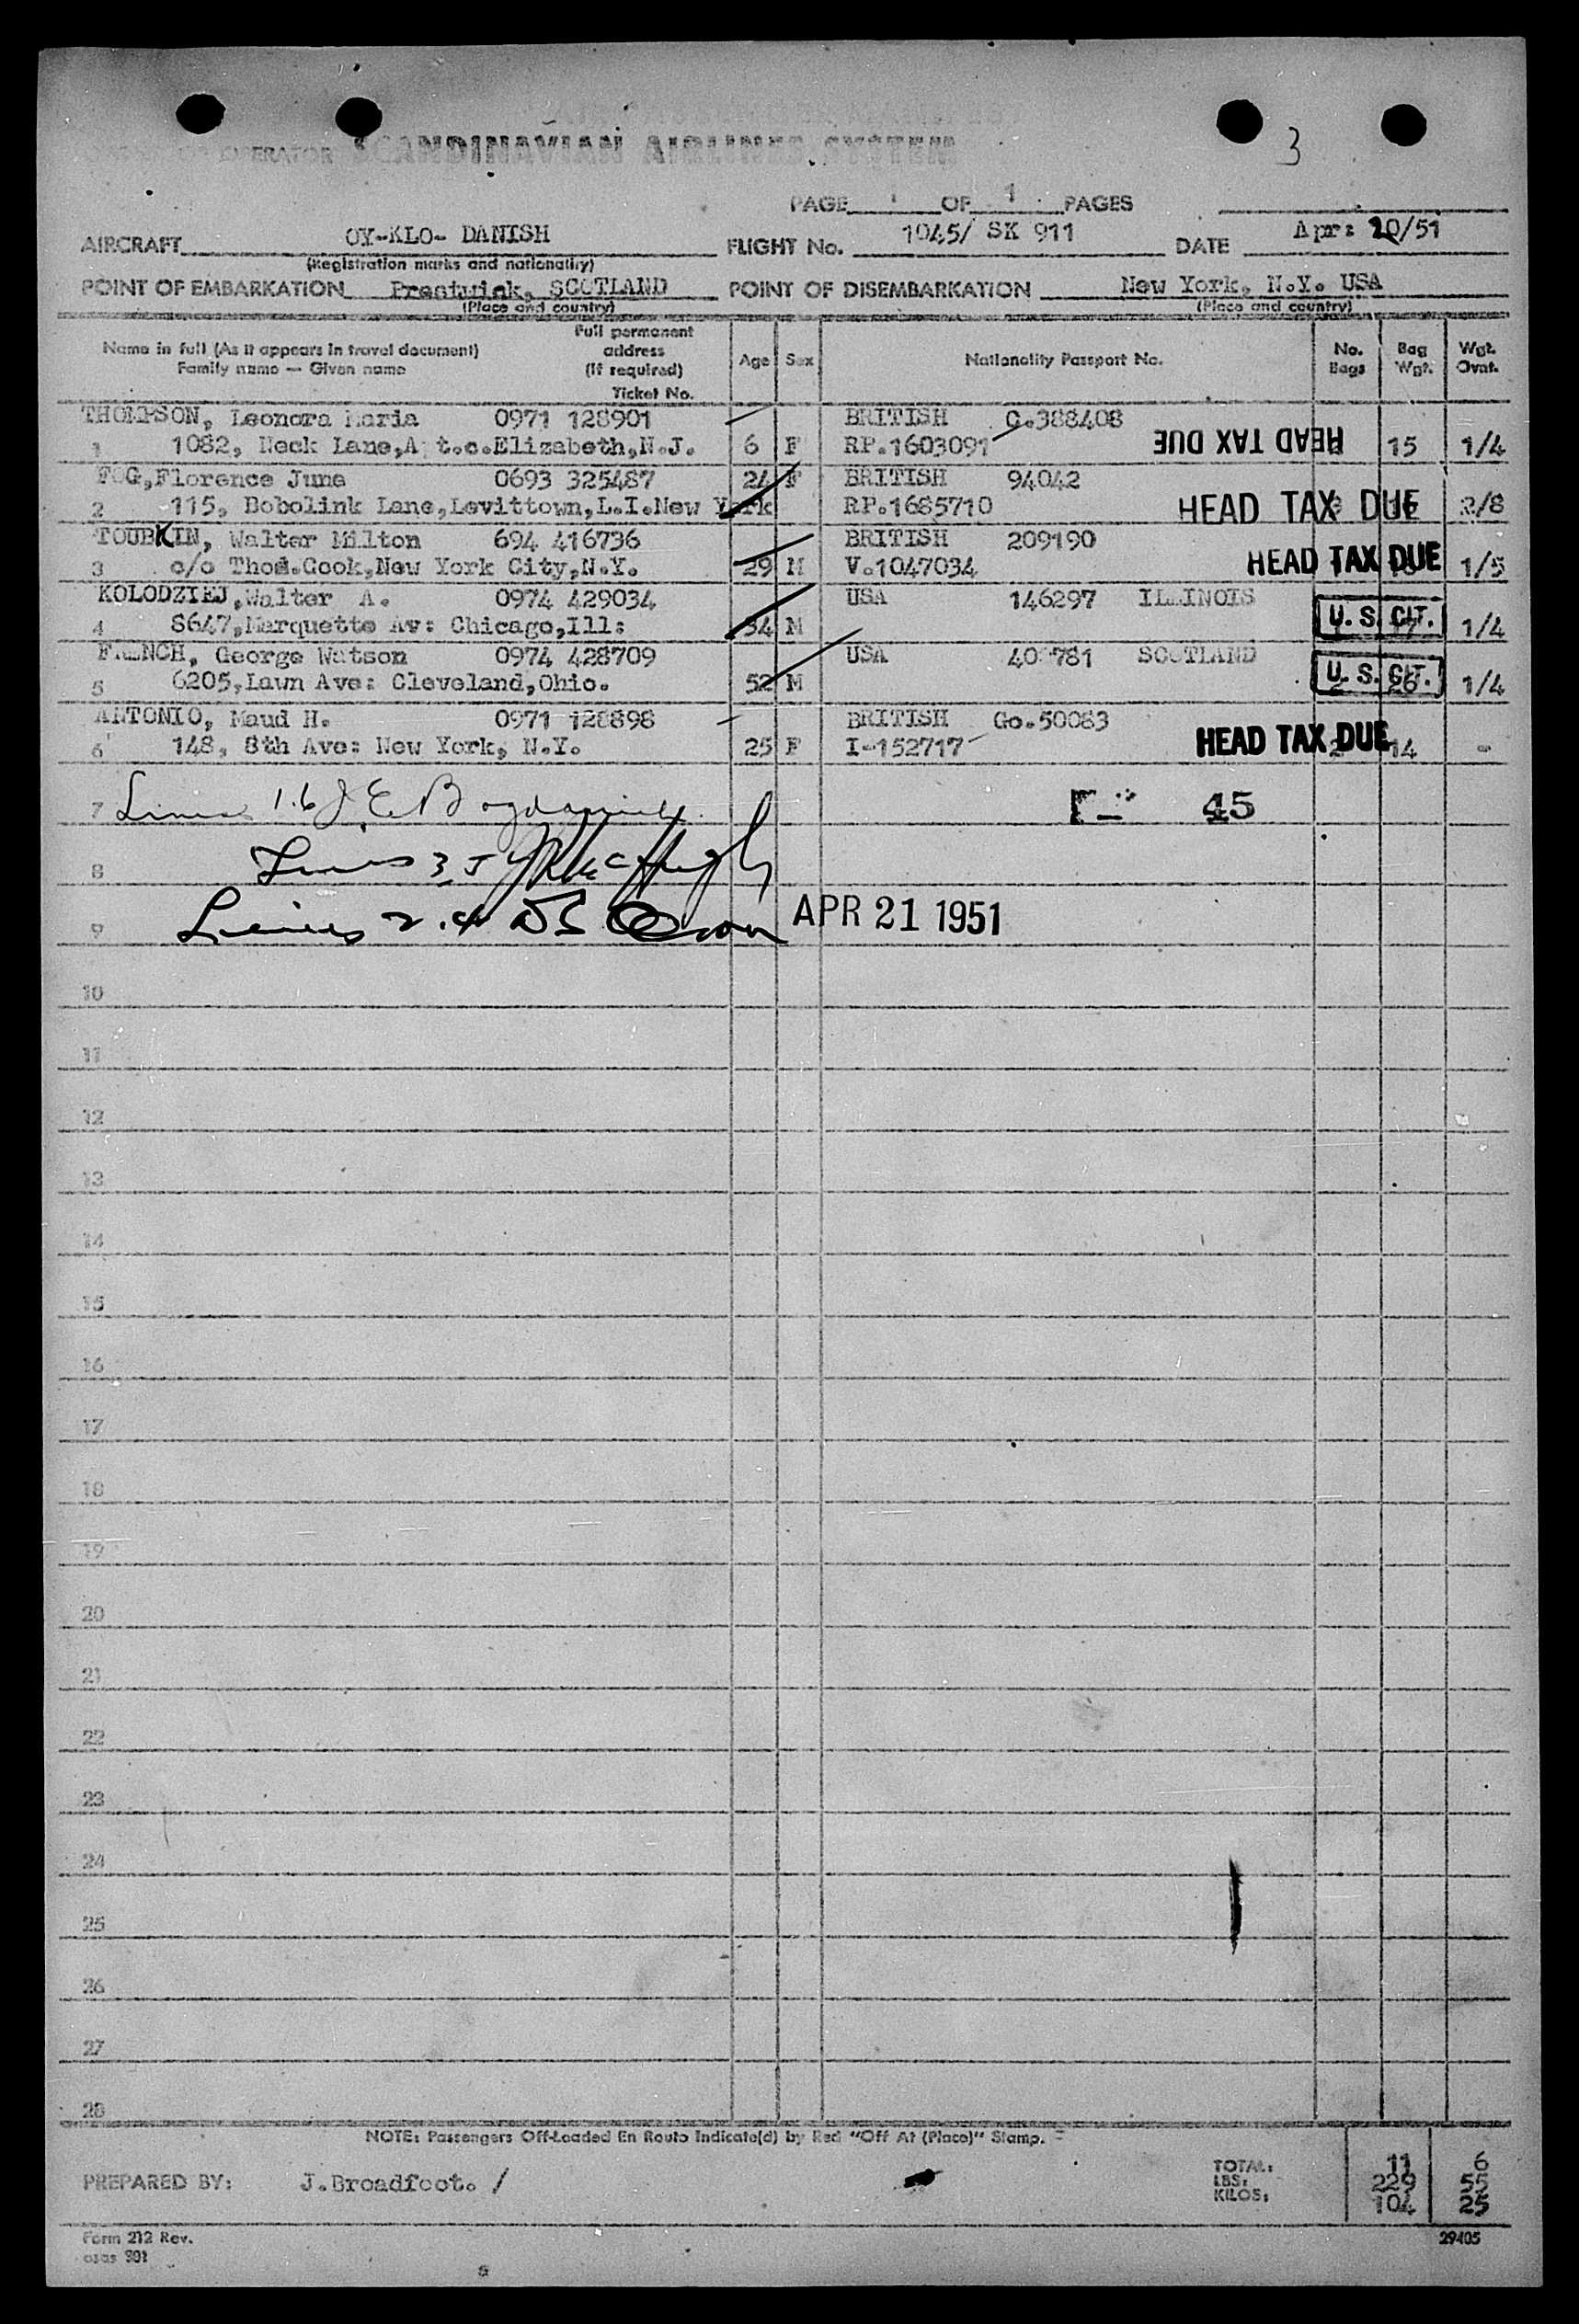 OPERATOR SCANDINAVIAN AIRLINES SYSTEM
3
PAGE 1 OF 1 PAGES
AIRCRAFT OY-KLO- DANISH FLIGHT No. 1045/ SK 911 DATE Apr: 20/51
(Registration marks and nationality)
POINT OF EMBARKATION Prestwick, SCOTLAND POINT OF DISEMBARKATION New York, N.Y. USA
(Place and country) (Place and country)
Name in full (As it appears in travel document) Family name — Given name
Full permanent address (If required) Ticket No.
Age Sex Nationality Passport No. No. Bags Bag Wgt. Wgt. Ovnt.
THOMPSON, Leonora Maria 0971 128901 BRITISH C.388408
1 1082, Neck Lane, t.c.Elizabeth,N.J. 6 F RP.1603091 HEAD TAX DUE 15 1/4
FOG,Florence June 0693 325487 24 F BRITISH 94042
2 115, Bobolink Lane,Levittown,L.I.New York RP.1685710 HEAD TAX DUE 2/8
TOUBKIN, Walter Milton 694 416736 BRITISH 209190
3 c/o Thos.Cook,New York City,N.Y. 29 M V.1047034 HEAD TAX DUE 1/5
KOLODZIEJ,Walter A. 0974 429034 USA 146297 ILLINOIS
4 8647,Marquette Av: Chicago,Ill: 34 M U. S. CIT. 1/4
FRENCH, George Watson 0974 428709 USA 781 SCOTLAND
5 6205,Lawn Ave: Cleveland,Ohio. 52 M U. S. CIT. 26 1/4
ANTONIO, Maud H. 0971 128898 BRITISH Go.50083
6 148, 8th Ave: New York, N.Y. 25 F I-152717 HEAD TAX DUE 2 14 -
7 Lines 1.6 45
8 Lines 3,5
9 Lines 2.4 APR 21 1951
10
11
12
13
14
15
16
17
18
19
20
21
22
23
24
25
26
27
28
NOTE: Passengers Off-Loaded En Route Indicate(d) by Red "Off At (Place)" Stamp.
PREPARED BY: J.Broadfoot. /
TOTAL: 11 6
LBS: 229 55
KILOS: 104 25
Form 212 Rev. 29405
osas 301